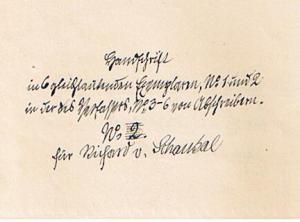 Handschrift
in 6 gleichlautenden Exemplaren, No 1 und 2
in der des Verfassers, No 3-6 von Abschreibern.
No 2.
für Richard v. Schaukal